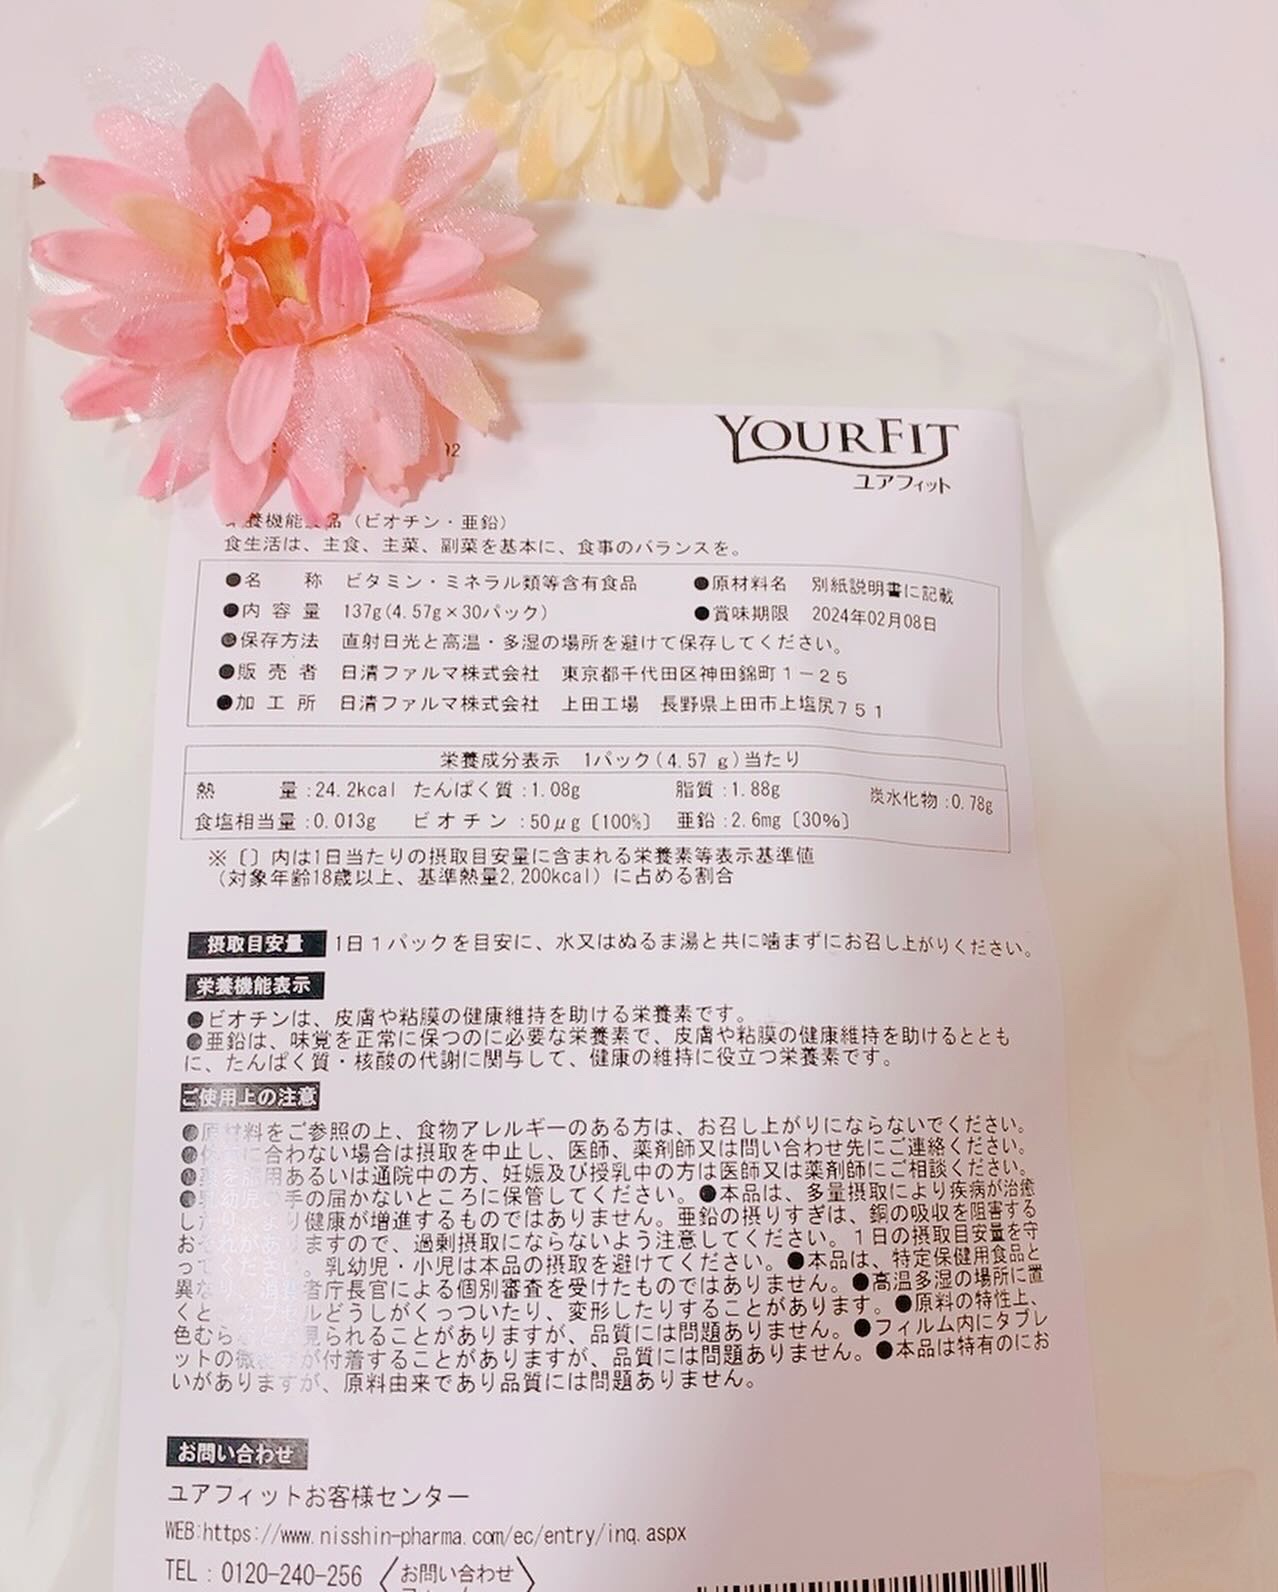 YOURFIT
ユアフィット
養機能 品（ビオチン・亜鉛）
食生活は、主食、主菜、副菜を基本に、食事のバランスを。
●名 称 ビタミン・ミネラル類等含有食品 ●原材料名 別紙説明書に記載
●内容量 137g(4.57g×30パック) ●賞味期限 2024年02月08日
●保存方法 直射日光と高温・多湿の場所を避けて保存してください。
●販売者 日清ファルマ株式会社 東京都千代田区神田錦町1－25
●加工所 日清ファルマ株式会社 上田工場 長野県上田市上塩尻751
栄養成分表示 1パック(4.57 g)当たり
熱 量:24.2kcal たんぱく質:1.08g 脂質:1.88g 炭水化物:0.78g
食塩相当量:0.013g ビオチン:50μg〔100%〕 亜鉛:2.6mg〔30%〕
※〔〕内は1日当たりの摂取目安量に含まれる栄養素等表示基準値
（対象年齢18歳以上、基準熱量2,200kcal）に占める割合
摂取目安量 1日1パックを目安に、水又はぬるま湯と共に噛まずにお召し上がりください。
栄養機能表示
●ビオチンは、皮膚や粘膜の健康維持を助ける栄養素です。
●亜鉛は、味覚を正常に保つのに必要な栄養素で、皮膚や粘膜の健康維持を助けるととも
に、たんぱく質・核酸の代謝に関与して、健康の維持に役立つ栄養素です。
ご使用上の注意
●原材料をご参照の上、食物アレルギーのある方は、お召し上がりにならないでください。
●体質に合わない場合は摂取を中止し、医師、薬剤師又は問い合わせ先にご連絡ください。
●薬を服用あるいは通院中の方、妊娠及び授乳中の方は医師又は薬剤師にご相談ください。
●乳幼児の手の届かないところに保管してください。●本品は、多量摂取により疾病が治癒
したり、より健康が増進するものではありません。亜鉛の摂りすぎは、銅の吸収を阻害する
おそれがありますので、過剰摂取にならないよう注意してください。1日の摂取目安量を守
ってください。乳幼児・小児は本品の摂取を避けてください。●本品は、特定保健用食品と
異なり、消費者庁長官による個別審査を受けたものではありません。●高温多湿の場所に置
くと、カプセルどうしがくっついたり、変形したりすることがあります。●原料の特性上、
色むら 見られることがありますが、品質には問題ありません。●フィルム内にタブレ
ットの微粉 が付着することがありますが、品質には問題ありません。●本品は特有のにお
いがありますが、原料由来であり品質には問題ありません。
お問い合わせ
ユアフィットお客様センター
WEB:https://www.nisshin-pharma.com/ec/entry/inq.aspx
TEL：0120-240-256 〈お問い合わせ〉